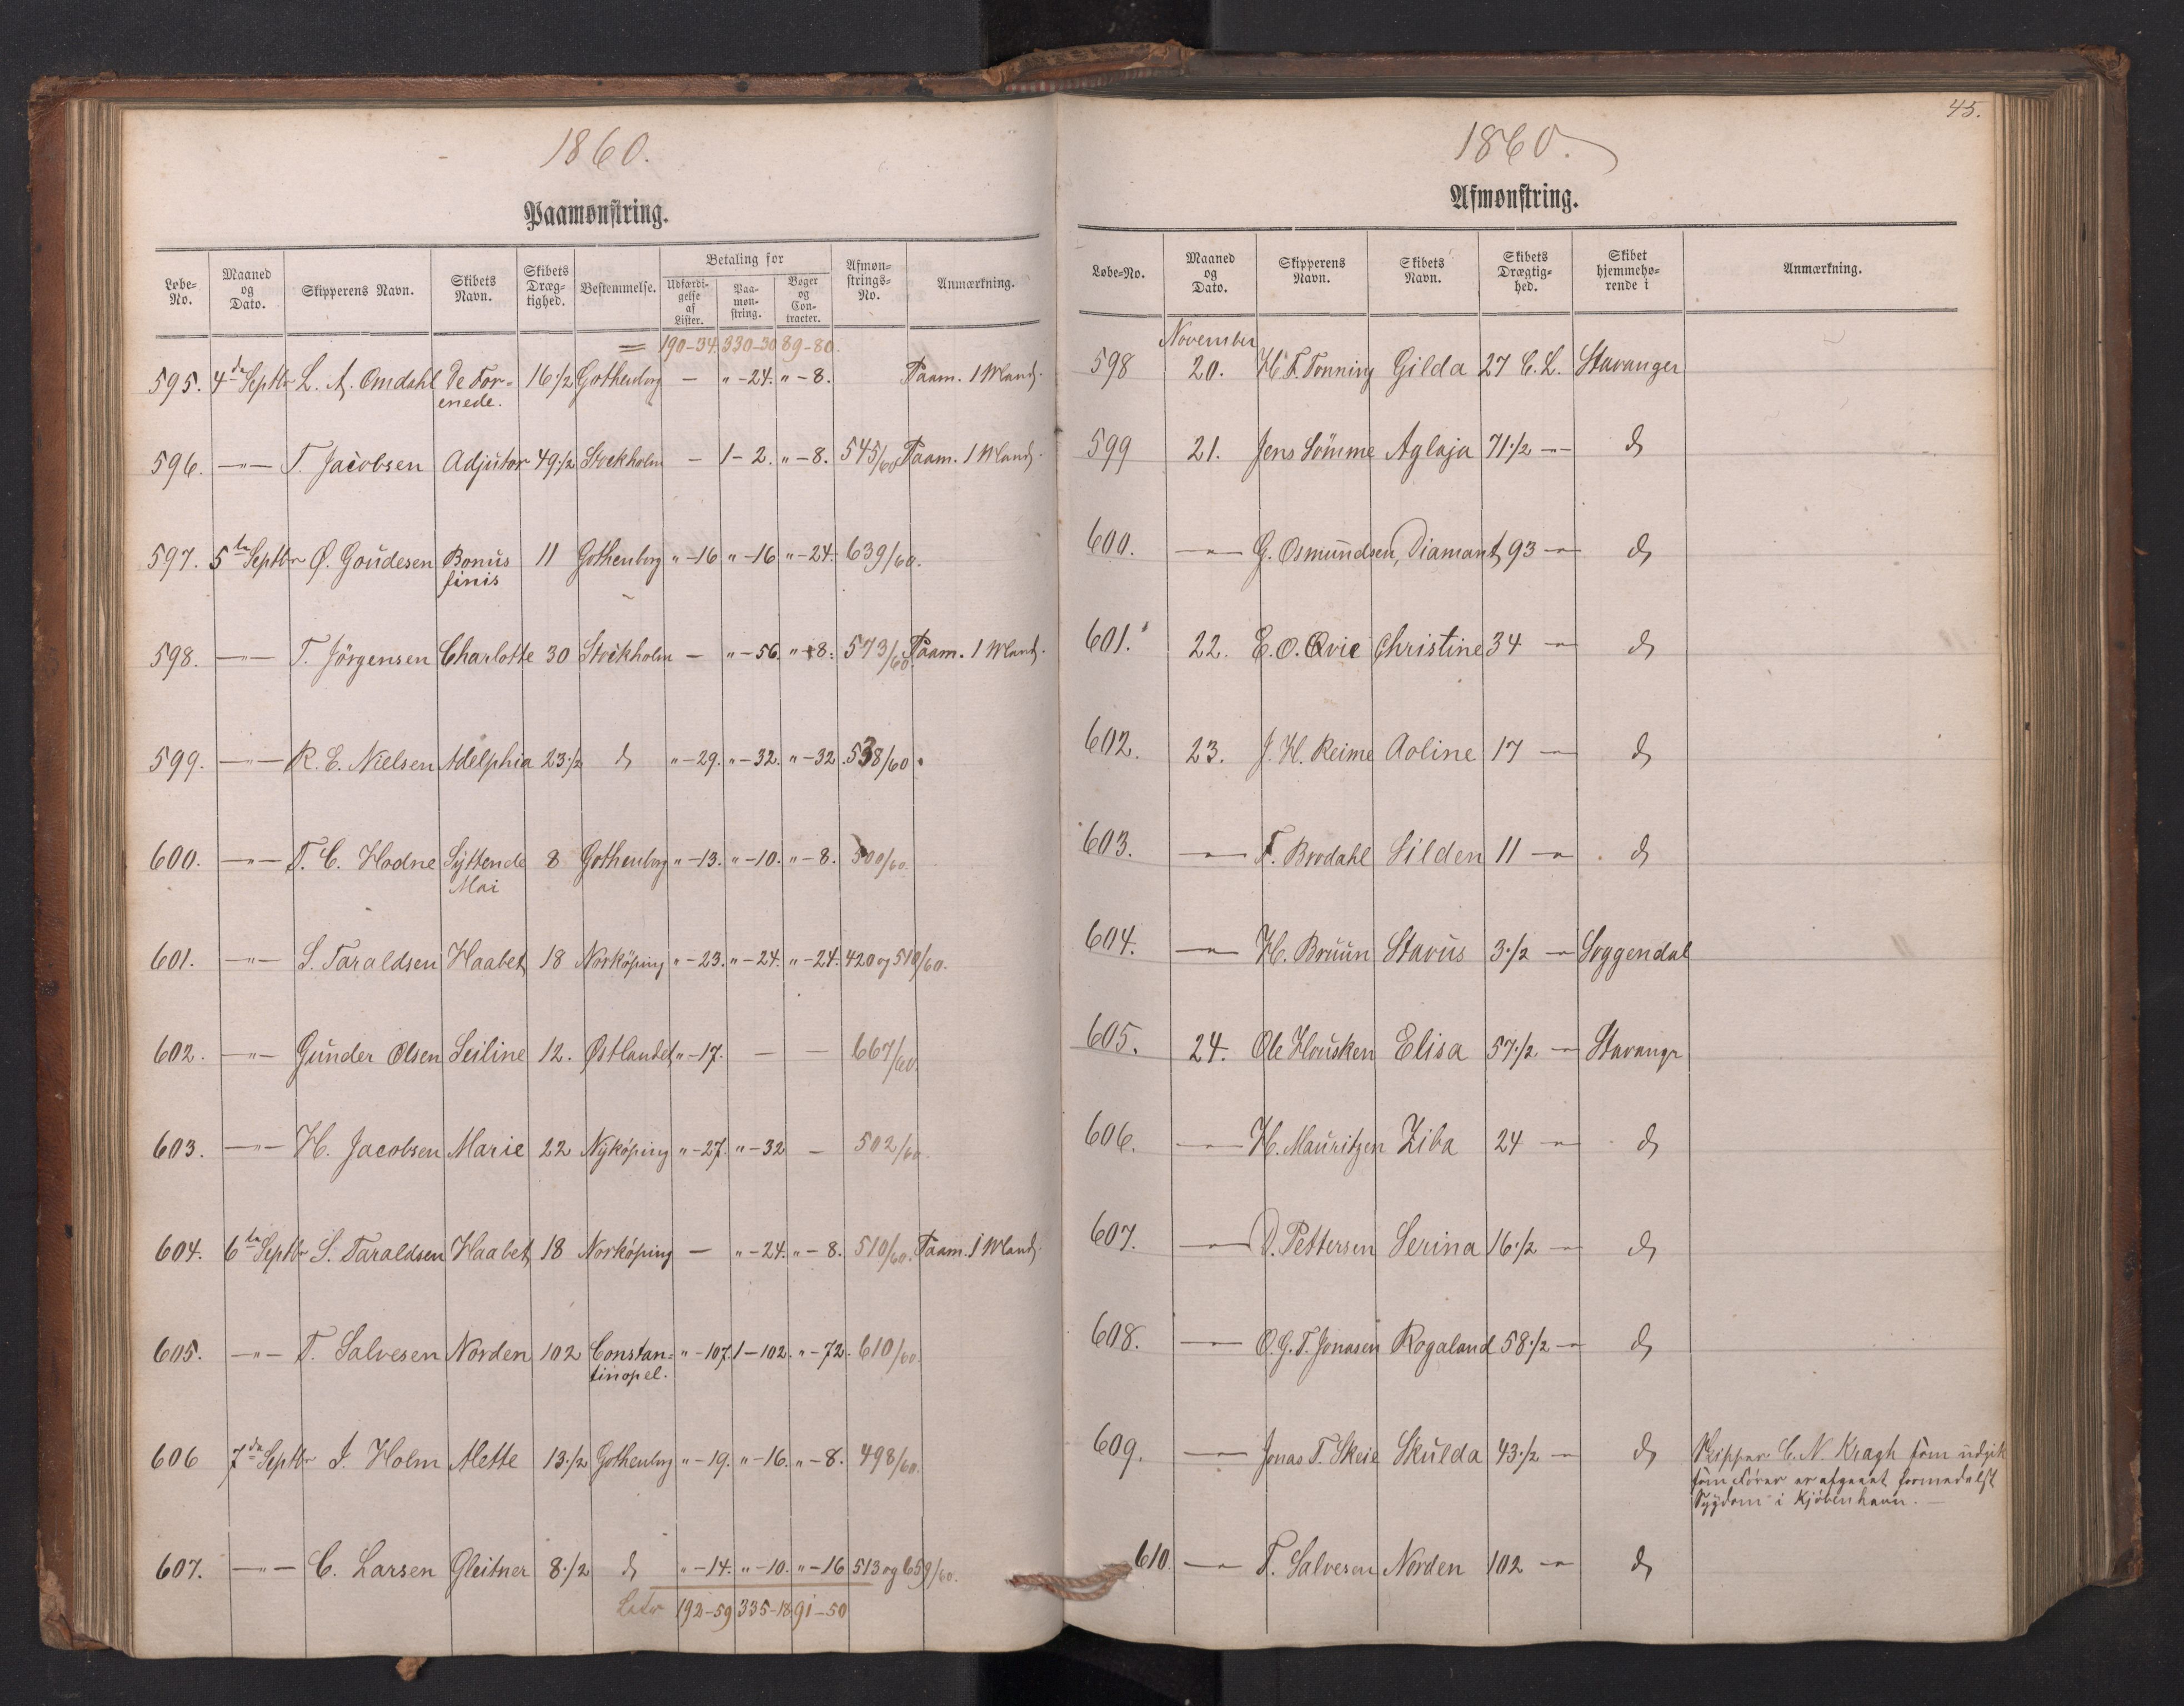 1860.
Paamønstring.
Løbe-No. Maaned og Dato. Skipperens Navn. Skibets Navn. Skibets Dræg-tighed. Bestemmelse. Betaling for Udfærdi-gelse af Lister. Paa-møn-string. Bøger og Con-tracter. Afmøn-strings-No. Anmærkning.
190-34. 330-30 89-80.
595. 4de Septbr L. A. Omdahl De For- 16 1/2 Gothenborg — " -24. " -8. Paam. 1 Mand.
enede.
596. —"— T. Jacobsen Adjutor 49 1/2 Stockholm — 1-2. " -8. 545/60 Paam. 1 Mand.
597. 5te Septbr Ø. Goudesen Bonus 11 Gothenborg " -16 " -16 " -24. 639/60.
finis
598. —"— T. Jörgensen Charlotte 30 Stockholm — " -56. " -8. 573/60 Paam. 1 Mand.
599. —"— R. E. Nielsen Adelphia 23 1/2 d " -29. " -32. " -32. 538/60.
600. —"— T. C. Hodne Syttende 8 Gothenborg " -13. " -10. " -8. 500/60.
Mai
601. —"— S. Taraldsen Haabet 18 Norköping " -23. " -24. " -24. 420 og 510/60.
602. —"— Gunder Olsen Seiline 12. Østlandet " -17. — — 667/60.
603. —"— H. Jacobsen Marie 22 Nyköping " -27. " -32 — 502/60.
604. 6te Septbr S. Taraldsen Haabet 18 Norköping — " -24. " -8. 510/60. Paam. 1 Mand.
605. —"— T. Salvesen Norden 102 Constan= " -107. 1-102. " -72. 610/60.
tinopel.
606 7de Septbr I. Holm Mette 13 1/2 Gothenborg " -19. " -16. " -8. 498/60.
607. —"— C. Larsen Gleitner 8 1/2 d " -14. " -10. " -16 513 og 659/60.
192-59 335-18 91-50
45.
1860.
Afmønstring.
Løbe-No. Maaned og Dato. Skipperens Navn. Skibets Navn. Skibets Drægtig-hed. Skibet hjemmehø-rende i Anmærkning.
November
598 20. H. F. Tonning Gilda 27 C. L. Stavanger
599 21. Jens Sömme Aglaja 71 1/2 —"— d
600. —"— G. Osmundsen, Diamant, 93 —"— d
601. 22. E. O. Qvie Christine 34 —"— d
602. 23. J. H. Reime Aoline 17 — d
603. —"— F. Brodahl Silden 11 —"— d
604. —"— H. Bruun Stavus 3 1/2 —"— Soggendal
605. 24. Ole Housken Elisa 57 1/2 — Stavangr
606. —"— H. Mauritzen Ziba 24 —"— d
607. —"— D. Pettersen Serina 16 1/2 —"— d
608. —"— O. G. T. Jonasen Rogaland 58 1/2 —"— d
609. —"— Jonas T. Skeie Skulda 43 1/2 —"— d Skipper C. N. Kragh som udgik
som Fører er afgaaet formedelst
Sygdom i Kjöbenhavn. —
610. —"— T. Salvesen Norden 102 —"— d